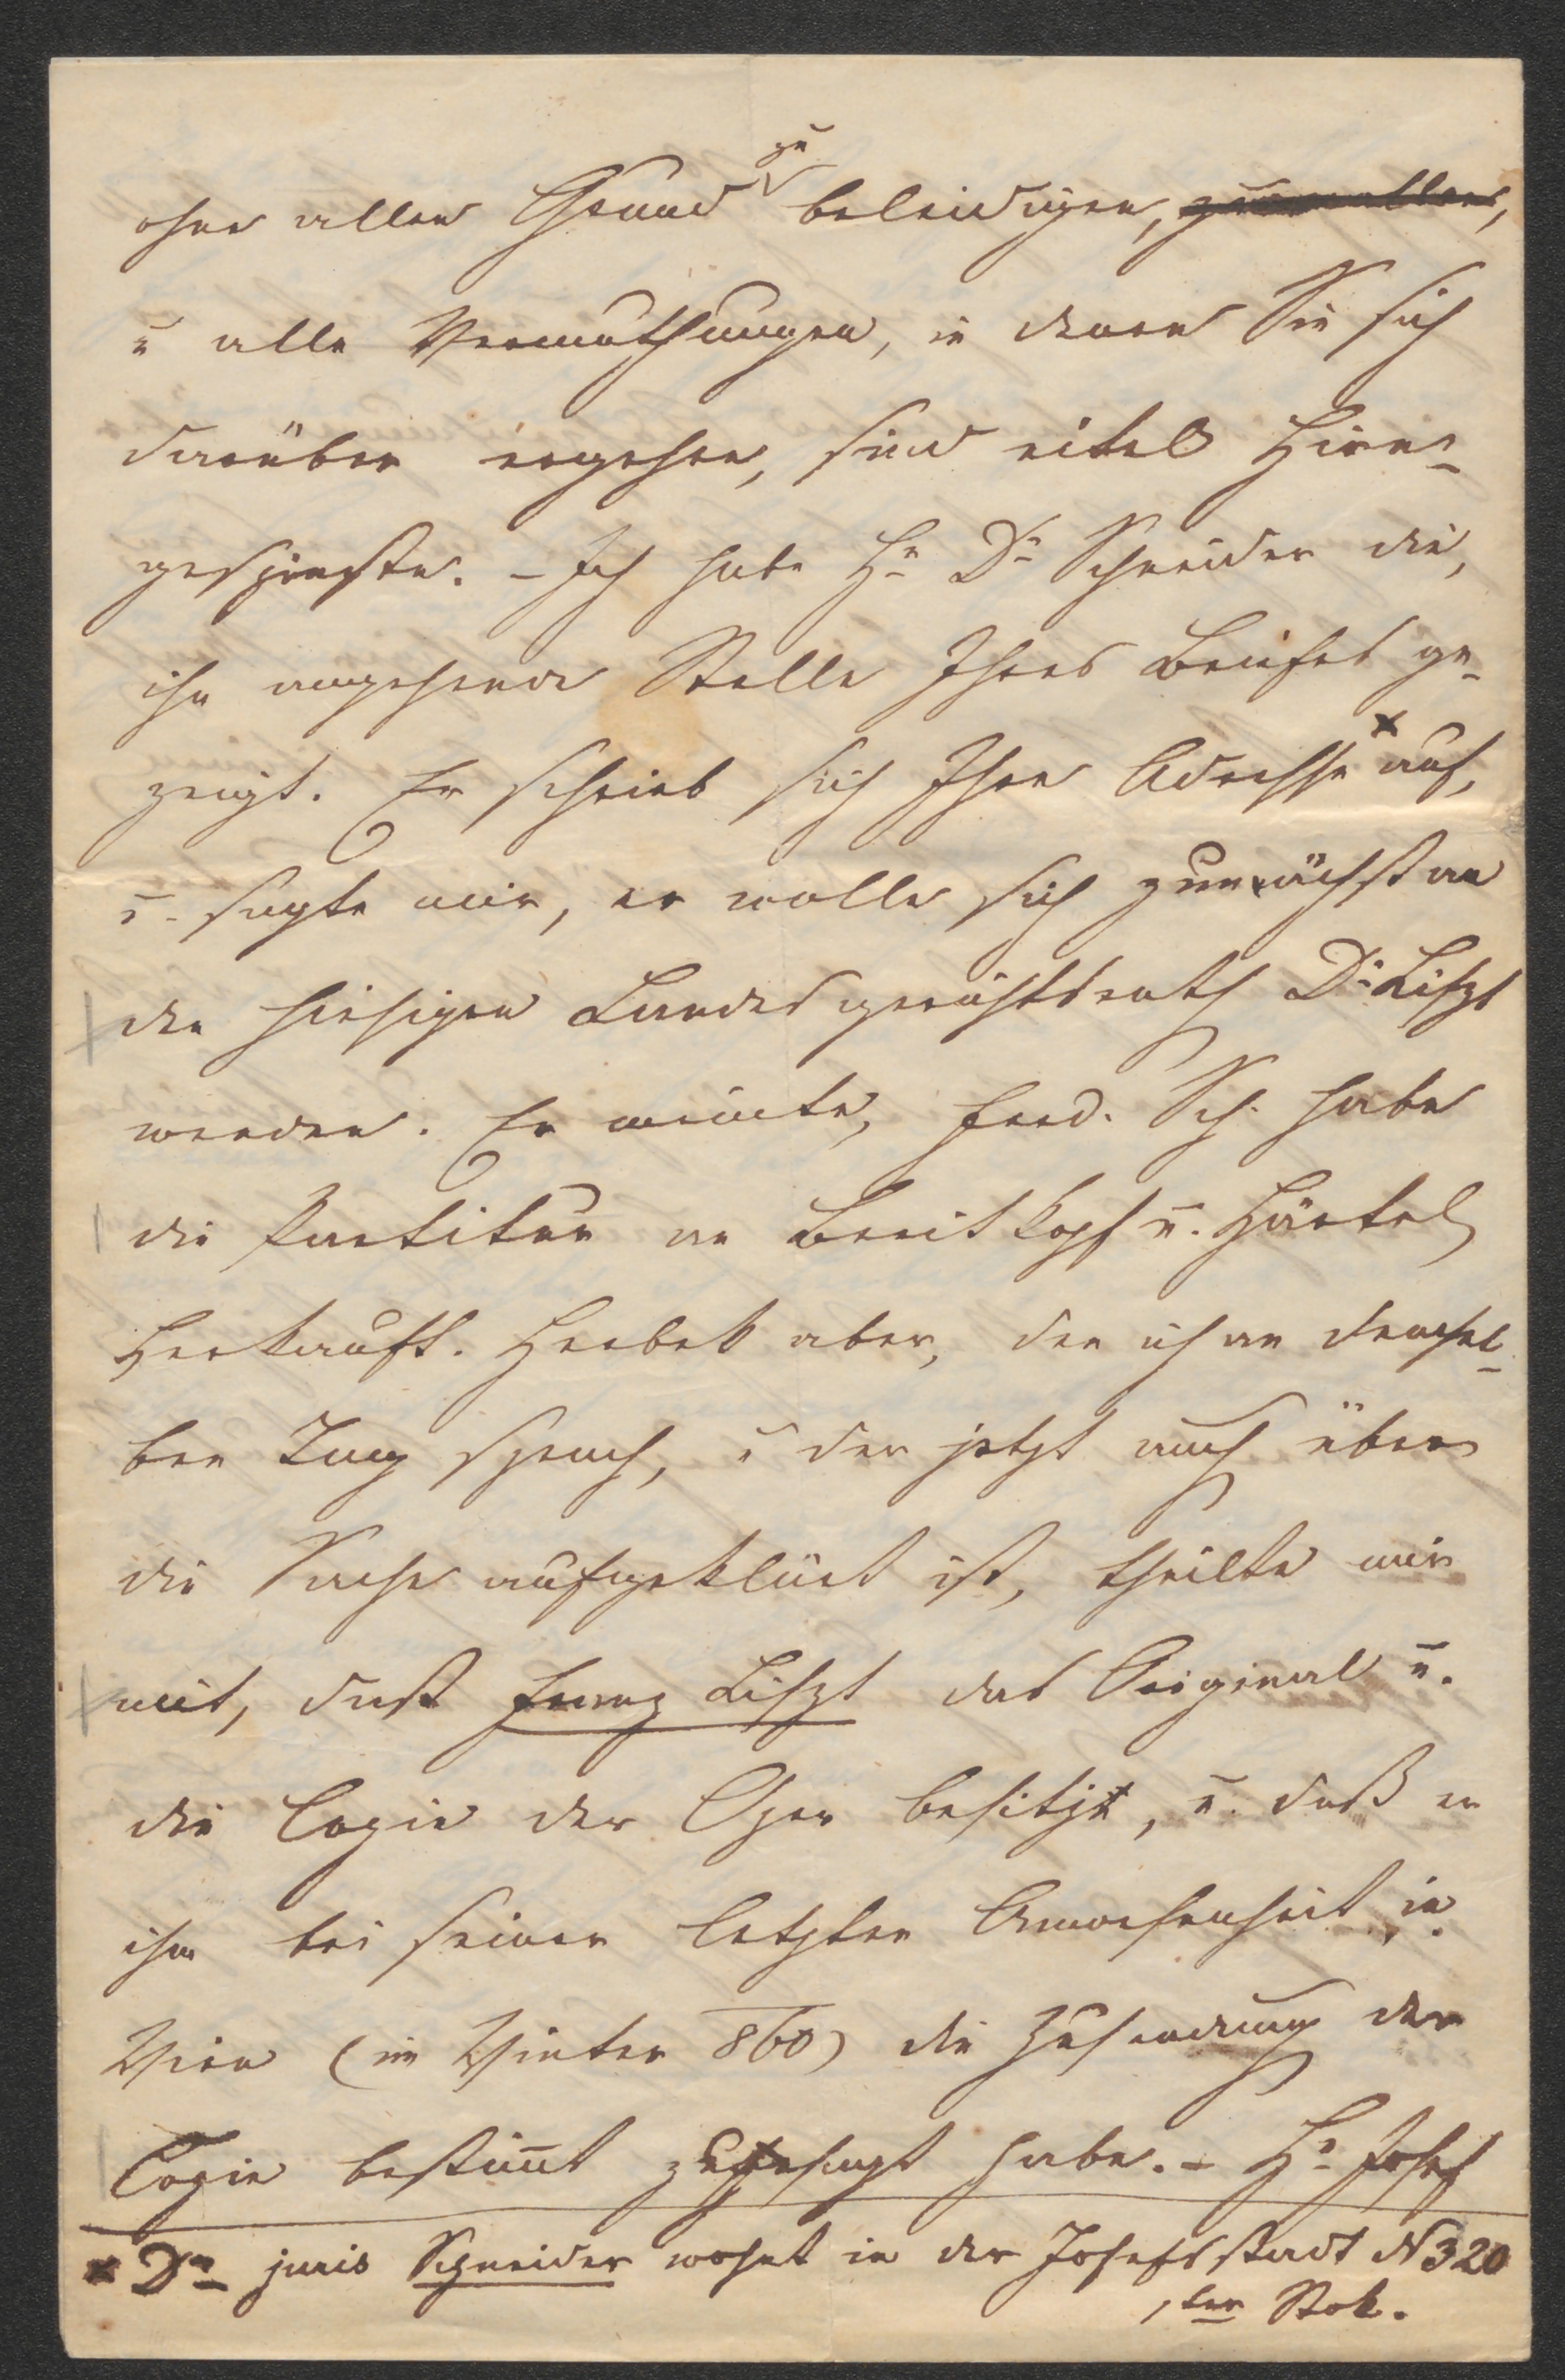 ohne allen Grund zu beleidigen,
u alle Vermuthungen, in denen Sie sich
darüber ergehen, sind eitel Hirn-
gespinste. – Ich habe Hn Dr Schneider die,
ihn angehende Stelle Ihres Briefes ge-
zeigt. Er schrieb sich Ihre Adresse x auf,
u. sagte mir, er wolle sich zunächst an
den hiesigen Landesgerichtsrath Dr Liszt
wenden. Er meinte, Ferd. Sch. habe
die Partitur an Breitkopf u. Härtel
verkauft. Herbek aber, den ich an demsel-
ben Tag sprach, u der jetzt auch über
die Sache aufgeklärt ist, theilte mir
mit, daß Franz Liszt das Original u.
die Copie der Oper besitzt, u. daß er
ihm bei seiner letzten Anwesenheit in
Wien (im Winter 860) die Zusendung der
Copie bestim̄t zugesagt habe. – Hr Josef
x Dr juris Schneider wohnt in der Josefsstadt N 320
1ter Stok.